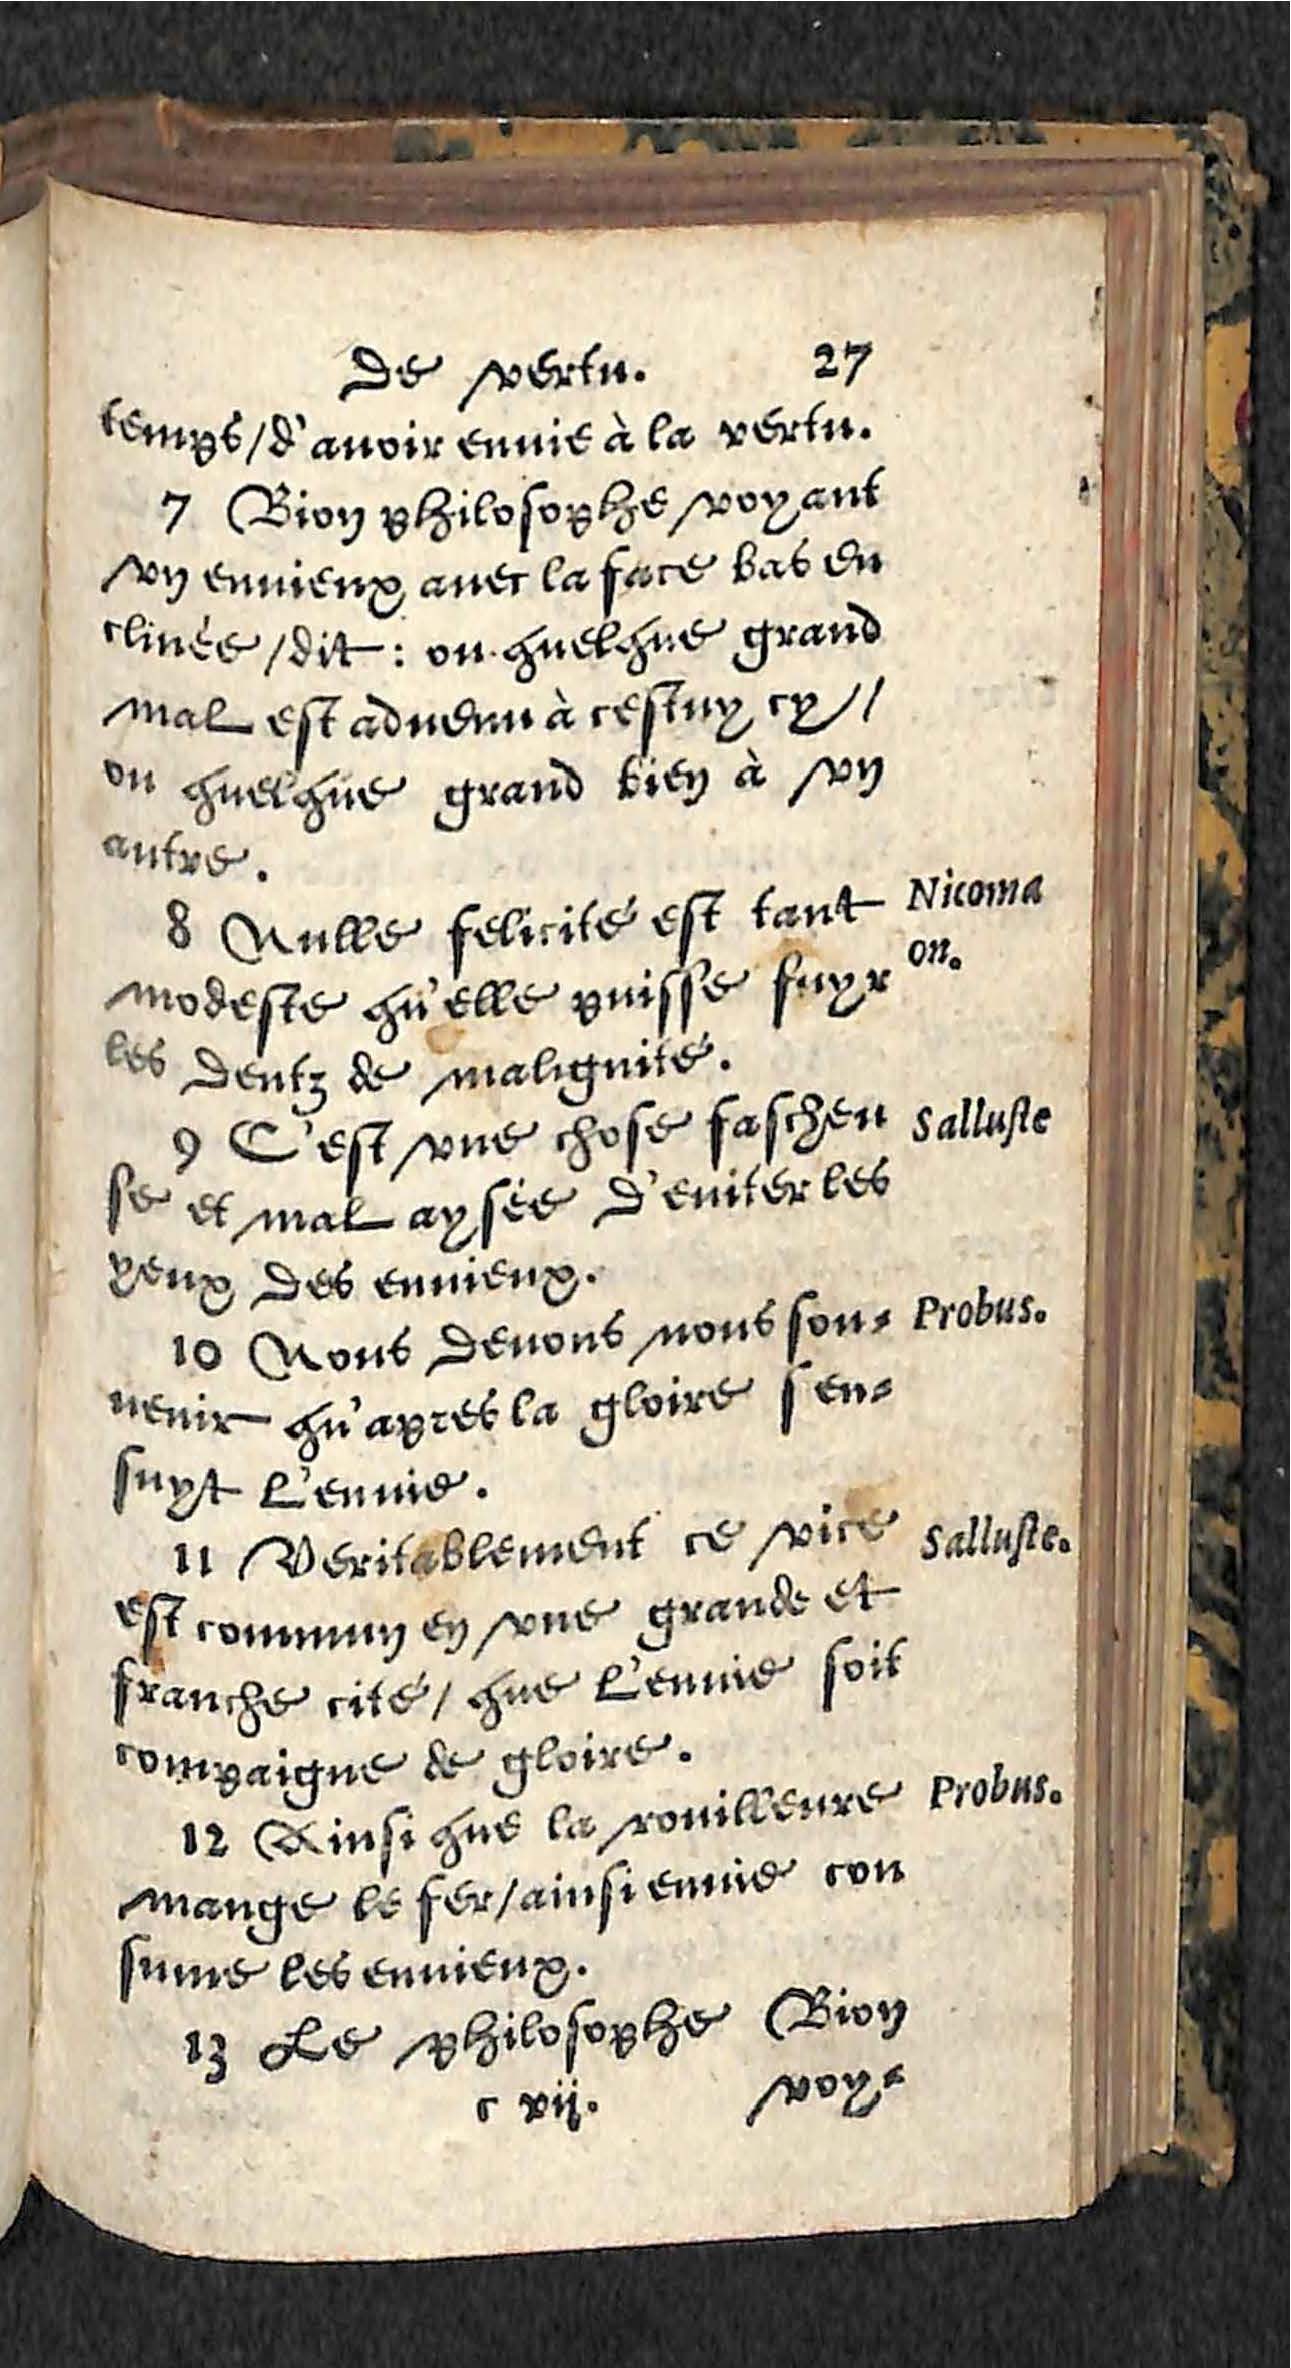 De vertu. 27
temps/d'auoir enuie à la vertu.
7 Bion philosophe voyant
vn enuieux auec la face bas en
clinée/dit: ou quelque grand
mal est aduenu à cestuy cy//
ou quelque grand bien à vn
autre.
8 Nulle felicité est tant
Nicoma
modeste qu'elle puisse fuyr
on.
les dentz de malignité.
9 C'est vne chose fascheu
Salluste
se et mal aysée d'euiter les
yeux des enuieux.
10 Nous deuons nous sou-
Probus.
uenir qu'apres la gloire s'en-
suyt l'enuie.
11 Veritablement ce vice
Salluste.
est commun en vne grande et
franche cité/que l'enuie soit
compaigne de gloire.
12 Ainsi que la rouilleure
Probus.
mange le fer/ainsi enuie con
sume les enuieux.
13 Le philosophe Bion
c vij. voy-